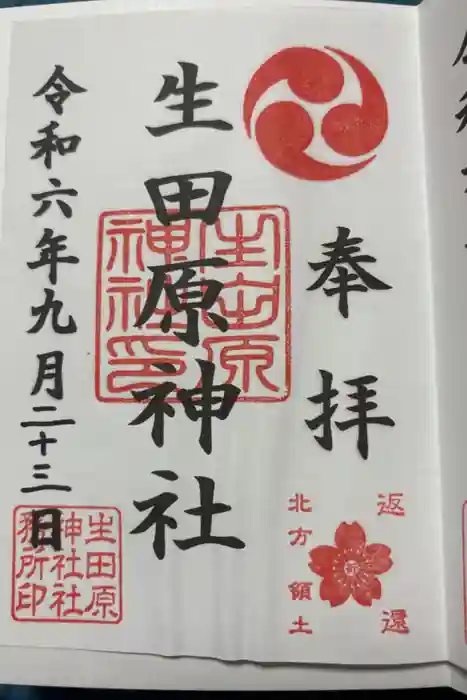 奉拝
返還
北方領土
生田原神社
生田原
神社印
令和六年九月二十三日
生田原
神社社
務所印